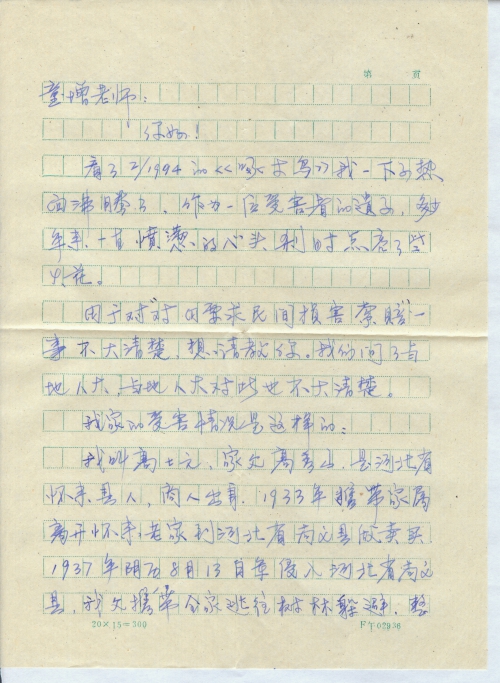 第 页
童增老师:
你好!
看了2/1994的《啄木鸟》我一下子热
血沸腾了,作为一位受害者的遗子,多少
年来一直愤懑的心头刹时点亮了些
火花。
由于对“对日要求民间损害索赔”一
事不大清楚,想请教你。我们问了当
地人大,当地人大对此也不大清楚。
我家的受害情况是这样的:
我叫高士元,家父高 ,是河北省
怀来县人,商人出身,1933年携带家属
离开怀来老家到河北省尚义县做卖买
1937年阴历8月13日 侵入河北省尚义
县,我父携带全家逃往树林躲避,整
20×15=300
F午02936